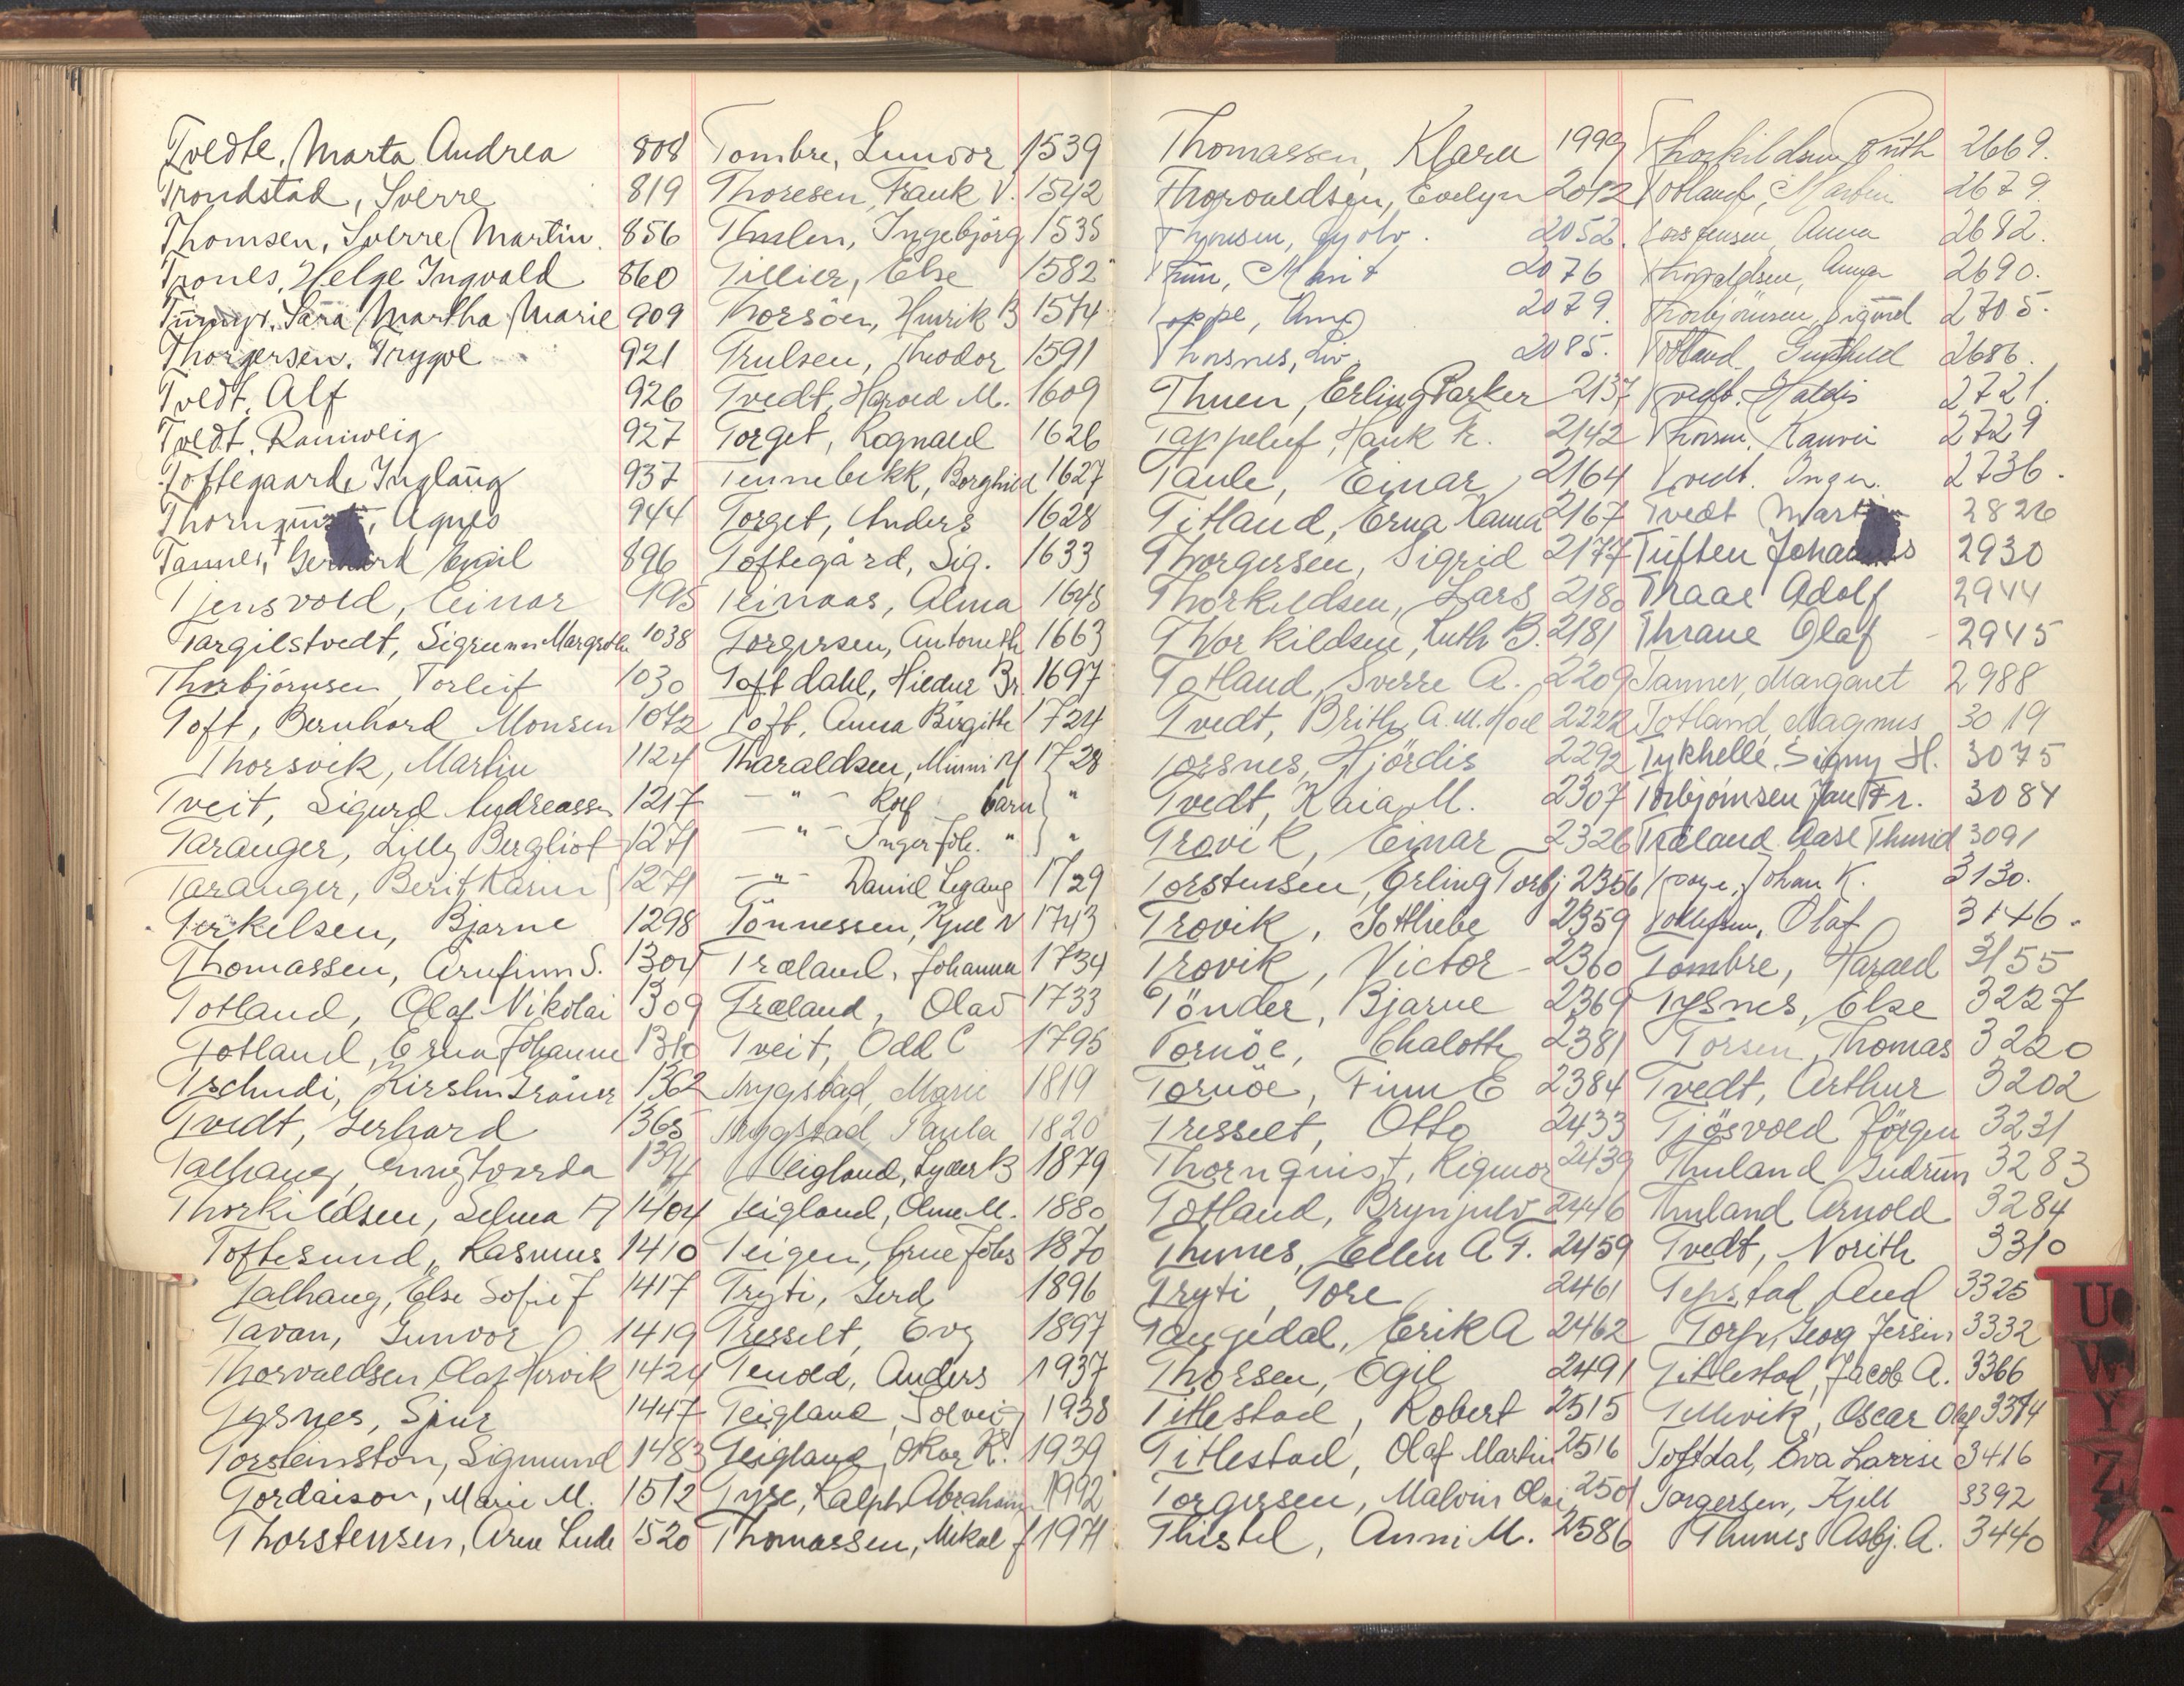 Tvedte, Marta Andrea 808
Trondstad, Sverre 819
Thomsen, Sverre Martin. 856
Trones, Helge Ingvald 860
Sara Martha Marie 909
Thorgersen, Trygve 921
Tvedt, Alf 926
Tvedt, Rannweig 927
Toftegaard, Inglaug 937
Agnes 944
Tanner, Gerhard Emil 896
Tjensvold, Einar 995
Targilstvedt, Sigrunn Margrethe 1038
Thorbjörnsen, Torleif 1030
Toft, Bernhard Monsen 1072
Thorsvik, Martin 1124
Tveit, Sigurd Andreassen 1217
Taranger, Lilly Bergliot 1271
Taranger, Berit Karin 1271
Terkelsen, Bjarne 1298
Thomassen, Arnfinn S. 1304
Totland, Olaf Nikolai 1309
Totland, Erna Johanne 1310
Tschudi, Kirsten 1362
Tvedt, Gerhard 1365
Talhaug, 1394
Thorkildsen, Selma A 1404
Toftesund, Rasmus 1410
Talhaug, Else Sofie J 1417
Tavan, Gunvor 1419
Thorvaldsen Olaf Hervik 1424
Tysnes, Sjur 1447
Torsteinston, Sigmund 1483
Tordaison, Marie M. 1512
Thorstensen, Arne 1520
Tombre, Gunvor 1539
Thoresen, Frank V. 1542
Ingebjörg 1535
Tillier, Else 1582
Thorsöen, Henrik B 1574
Trulsen, Theodor 1591
Tvedt, Harald M. 1609
Torget, Rognald 1626
Tennebekk, Borghild 1627
Torget, Anders 1628
Toftegård, Sig. 1633
Teinaas, Alma 1648
Torgersen, Antoneth 1663
Toftdahl, Hildur Br. 1697
Toft, Anna Birgithe 1724
Tharaldsen, Minni M 1728
— " — Rolf barn "
— " — Inger Joh. " "
— " — David Legang 1729
Tönnessen, Kjell N 1743
Træland, Johanna 1734
Træland, Olav 1733
Tveit, Odd C 1795
Trygstad, Marie 1819
Trygstad, Paula 1820
Teigland, Lyder B 1879
Teigland, Olme M. 1880
Teigen, Arne Johs 1870
Tryti, Gerd 1896
Tresselt, Evy 1897
Tenold, Anders 1937
Teigland, Solveig 1938
Teigland, Oskar K. 1939
Tyse, Ralph Abraham 1992
Thomassen, Mikal J 1971
Thomassen, Klara 1999
Thorvaldsen, Evelyn 2012
2052.
Thun, Marit 2076
Toppe, 2079.
Thorsnes, Liv 2085.
Thuen, Erling Parker 2137
Hauk Fr. 2142
Taule, Einar 2164
Titland, Erna Kama 2167
Thorgersen, Sigrid 2177
Thorkildsen, Lars 2180
Thorkildsen, Ruth B. 2181
Totland, Sverre A. 2209
Tvedt, Brith A. M. 2222
Torsnes, Hjördis 2292
Tvedt, Kaia M. 2307
Trovik, Einar 2326
Torstensen, Erling Torbj 2356
Trovik, Gottliebe 2359
Trovik, Victor 2360
Tönder, Bjarne 2369
Tornöe, Chalotte 2381
Tornöe, Finn E 2384
Tresselt, Otto 2433
Thornquist, Rigmor 2439
Totland, Brynjulv 2446
Thunes, Ellen A T. 2459
Tryti, Tore 2461
Taugedal, Erik A 2462
Thorsen, Egil 2491
Titlestad, Robert 2515
Titlestad, Olaf Martin 2516
Torgersen, Malvin Olai 2501
Thistel, Anni M. 2586
Thorkildsen, Ruth 2669.
Totland, Martin 2679.
Torstensen, Anna 2682.
Thorvaldsen, 2690.
Thorbjörnsen, Sigurd 2705.
Totland, Gunhild 2686.
Tvedt, Haldis 2721.
Thorsen, Ranvei 2729
Tvedt. Inger. 2736.
Tvedt 2826
Tuften Johannes 2930
Thaae Adolf 2944
Thrane Olaf - 2945
Tanner, Margaret 2988
Totland, Magnus 3019
Tykhelle, Signy H. 3075
Torbjörnsen Jan Fr. 3084
Træland Aase Thurid 3091
Johan K. 3130.
Tollefsen, Olaf 3146.
Tombre, Harald 3155
Tysnes, Else 3227
Torsen, Thomas 3220
Tvedt, Arthur 3202
Tjösvold Jörgen 3231
Thuland Gudrun 3283
Thuland Arnold 3284
Tvedt, Norith 3310
Tepstad Aud 3325
Georg Jersin 3332
Titlestad, Jacob A. 3366
Tellevik, Oscar Olaf 3374
Toftdal, Eva Larrise 3416
Torgersen, Kjell 3392
Thunes Asbj. A. 3440
U
W
Y
Z